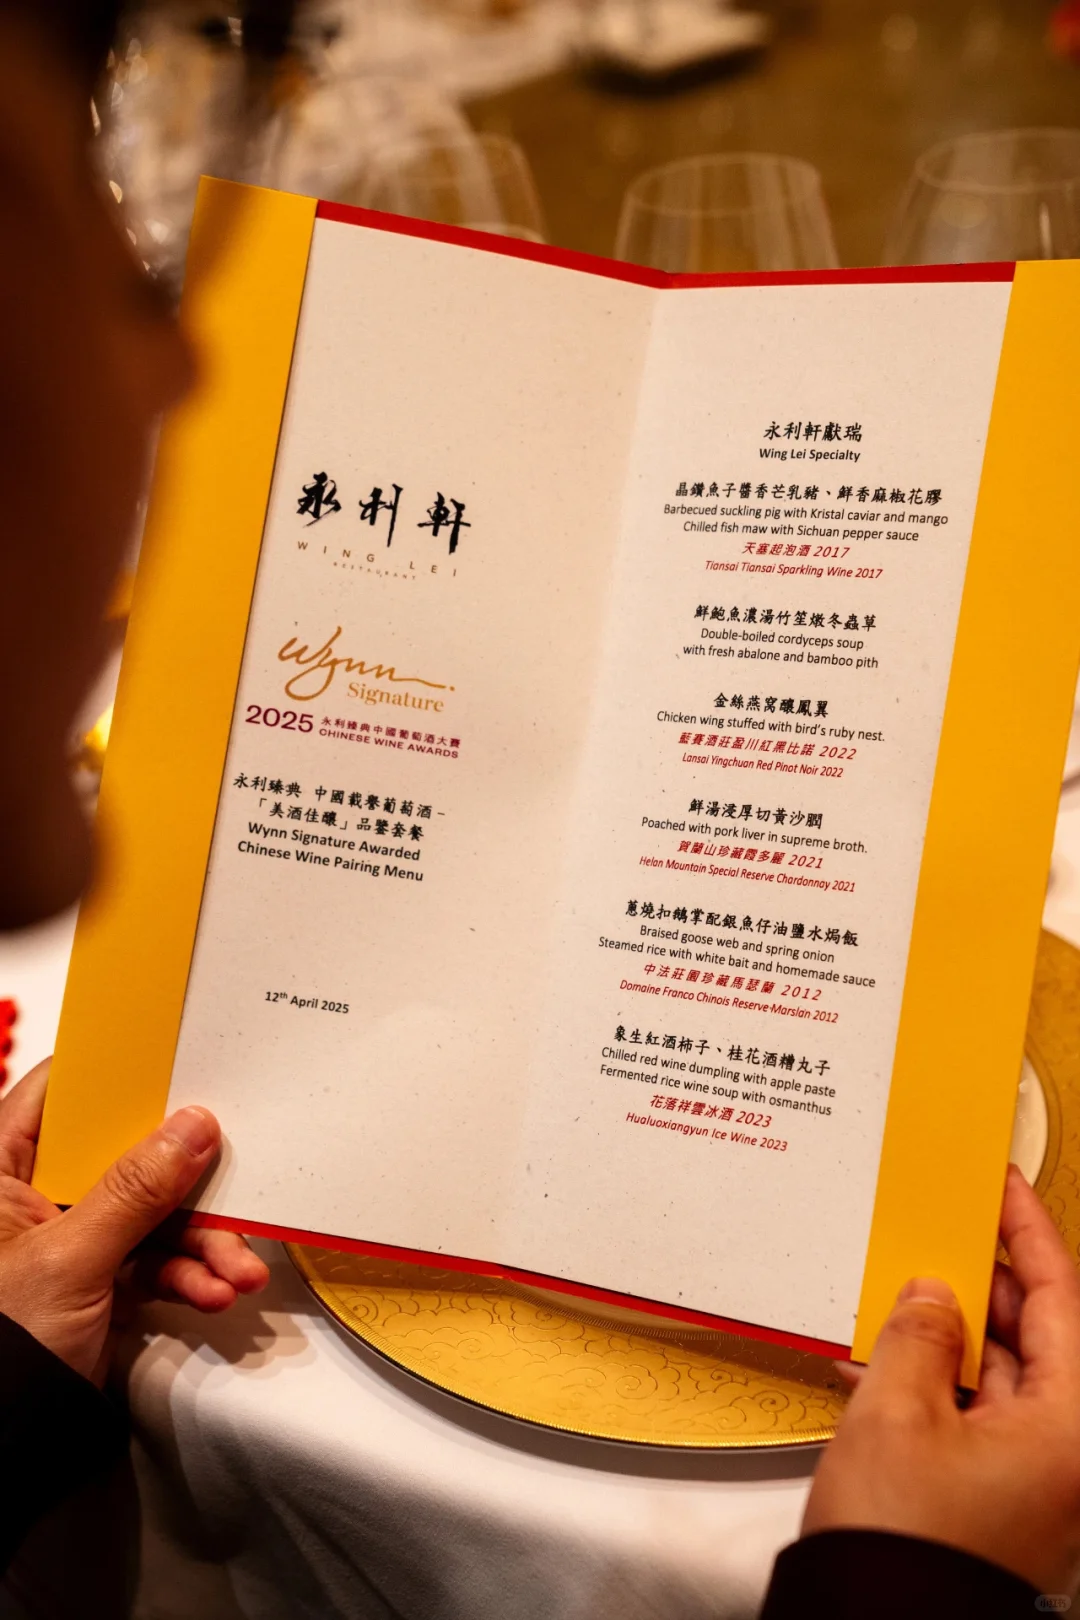 永利軒
WING LEI
RESTAURANT
Wynn
Signature
2025 永利臻典中國葡萄酒大賽
CHINESE WINE AWARDS
永利臻典 中國載譽葡萄酒 –
「美酒佳釀」品鑒套餐
Wynn Signature Awarded
Chinese Wine Pairing Menu
12th April 2025
永利軒獻瑞
Wing Lei Specialty
晶鑽魚子醬香芒乳豬、鮮香麻椒花膠
Barbecued suckling pig with Kristal caviar and mango
Chilled fish maw with Sichuan pepper sauce
天塞起泡酒 2017
Tiansai Tiansai Sparkling Wine 2017
鮮鮑魚濃湯竹笙燉冬蟲草
Double-boiled cordyceps soup
with fresh abalone and bamboo pith
金絲燕窩釀鳳翼
Chicken wing stuffed with bird's ruby nest.
藍賽酒莊盈川紅黑比諾 2022
Lansai Yingchuan Red Pinot Noir 2022
鮮湯浸厚切黃沙膶
Poached with pork liver in supreme broth.
賀蘭山珍藏霞多麗 2021
Helan Mountain Special Reserve Chardonnay 2021
蔥燒扣鵝掌配銀魚仔油鹽水焗飯
Braised goose web and spring onion
Steamed rice with white bait and homemade sauce
中法莊園珍藏馬瑟蘭 2012
Domaine Franco Chinois Reserve Marslan 2012
象生紅酒柿子、桂花酒糟丸子
Chilled red wine dumpling with apple paste
Fermented rice wine soup with osmanthus
花落祥雲冰酒 2023
Hualuoxiangyun Ice Wine 2023